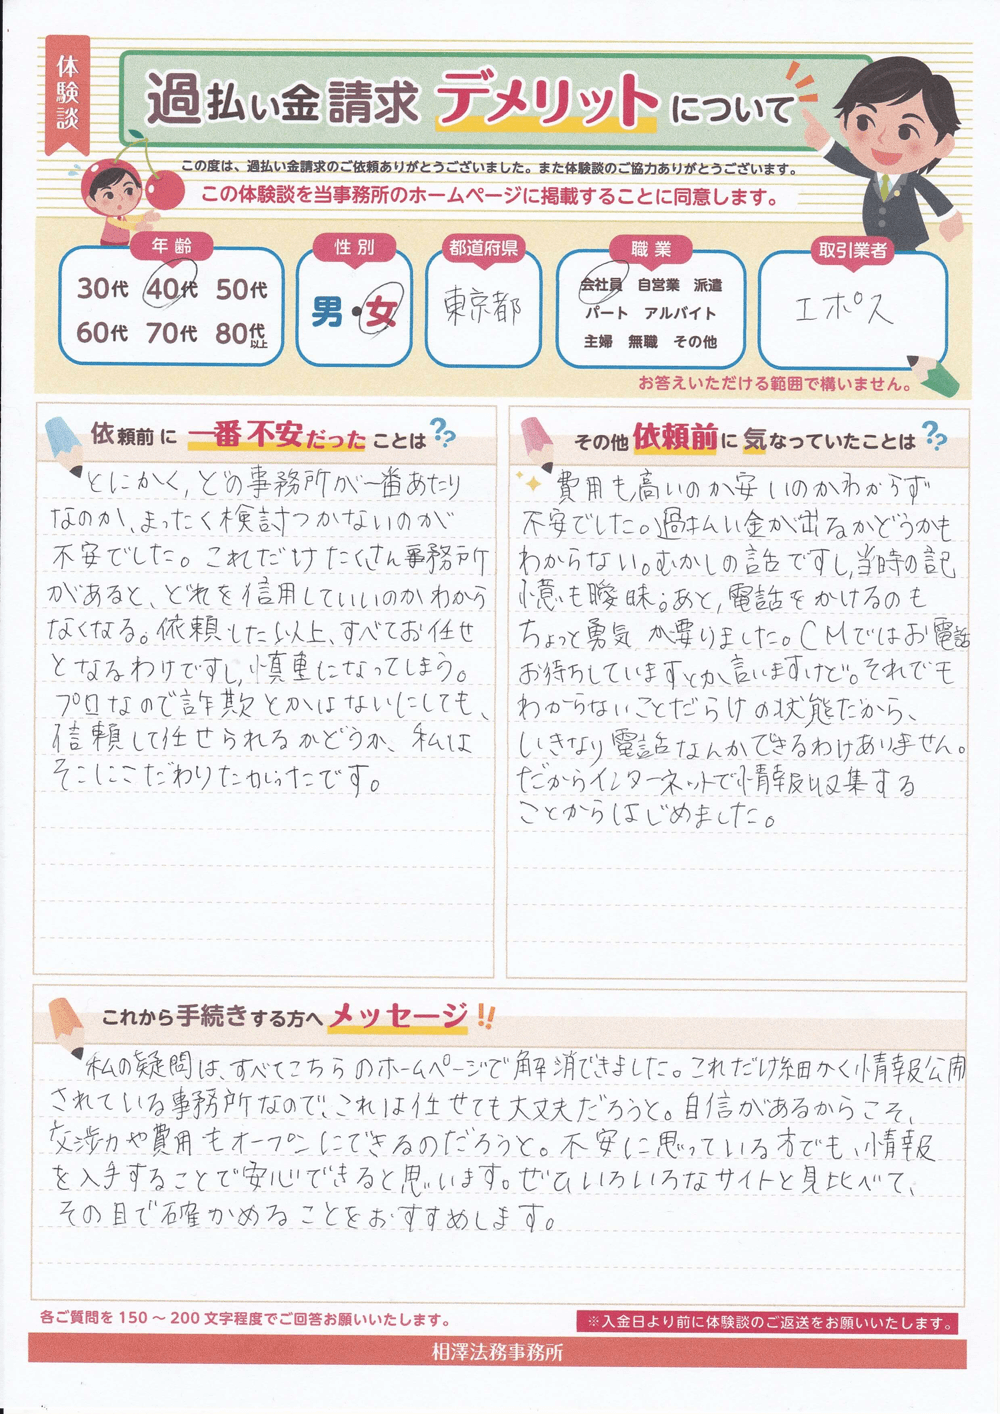 体験談
過払い金請求 デメリット について
この度は、過払い金請求のご依頼ありがとうございました。また体験談のご協力ありがとうございます。
この体験談を当事務所のホームページに掲載することに同意します。
年齢
30代 40代 50代
60代 70代 80代以上
性別
男・女
都道府県
東京都
職業
会社員 自営業 派遣
パート アルバイト
主婦 無職 その他
取引業者
エポス
お答えいただける範囲で構いません。
依頼前に 一番不安だった ことは??
とにかく、どの事務所が一番あたり
なのか、まったく検討つかないのが
不安でした。これだけたくさん事務所
があると、どれを信用していいのかわから
なくなる。依頼した以上、すべてお任せ
となるわけですし、慎重になってしまう。
プロなので詐欺とかはないにしても、
信頼して任せられるかどうか、私は
そこにこだわりたかったです。
その他 依頼前に 気なっていたことは??
費用も高いのか安いのかわからず
不安でした。過払い金が出るかどうかも
わからない。むかしの話ですし、当時の記
憶も曖昧。あと、電話をかけるのも
ちょっと勇気が要りました。CMではお電話
お待ちしていますとか言いますけど。それでも
わからないことだらけの状態だから、
いきなり電話なんかできるわけありません。
だからインターネットで情報収集する
ことからはじめました。
これから手続きする方へ メッセージ!!
私の疑問は、すべてこちらのホームページで解消できました。これだけ細かく情報公開
されている事務所なので、これは任せても大丈夫だろうと。自信があるからこそ、
交渉力や費用もオープンにできるのだろうと。不安に思っている方でも、情報
を入手することで安心できると思います。ぜひいろいろなサイトと見比べて、
その目で確かめることをおすすめします。
各ご質問を150～200文字程度でご回答お願いいたします。
※入金日より前に体験談のご返送をお願いいたします。
相澤法務事務所